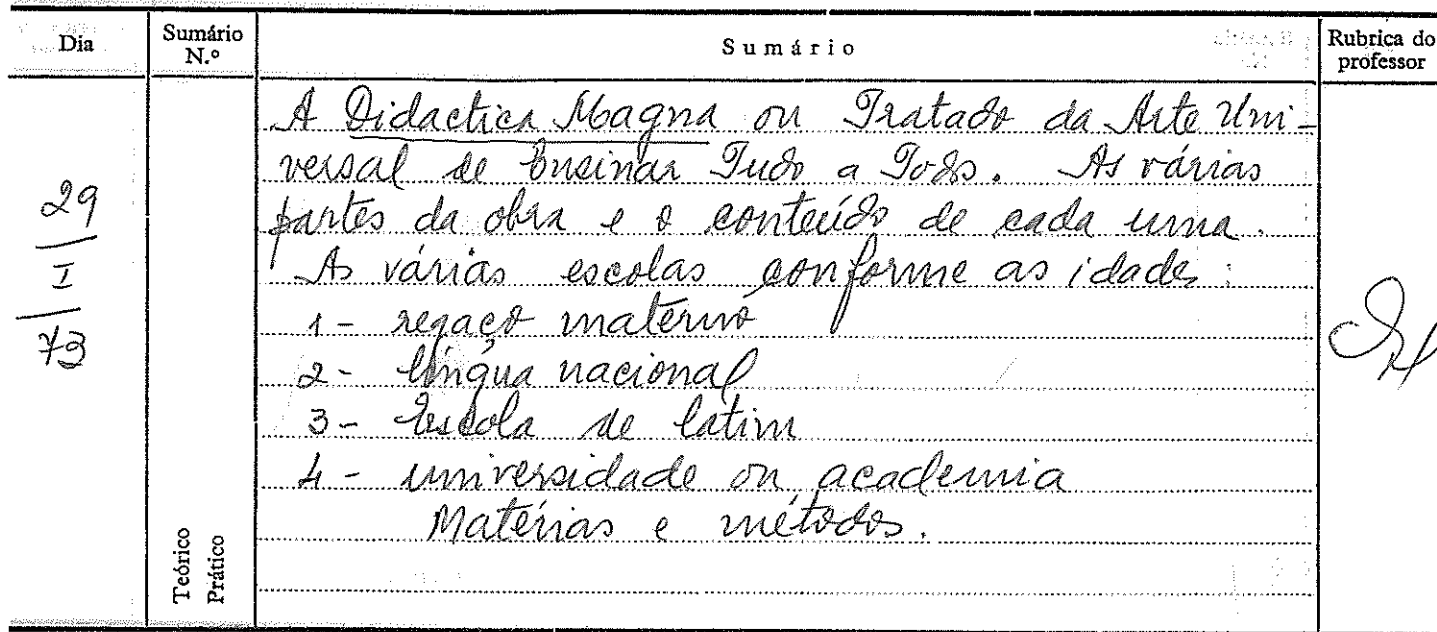 Dia
Sumário N.º
Sumário
Rubrica do professor
29
I
73
A Didactica Magna ou Tratado da Arte Uni-
versal de Ensinar Tudo a Todos. As várias
partes da obra e o conteúdo de cada uma.
As várias escolas conforme as idades:
1 - regaço materno
2 - língua nacional
3 - Escola de latim
4 - universidade ou academia
Matérias e métodos.
Teórico
Prático